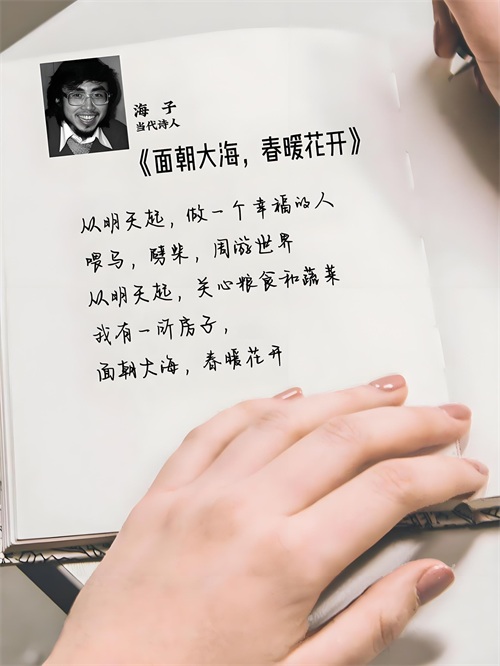 海 子
当代诗人
《面朝大海，春暖花开》
从明天起，做一个幸福的人
喂马，劈柴，周游世界
从明天起，关心粮食和蔬菜
我有一所房子，
面朝大海，春暖花开